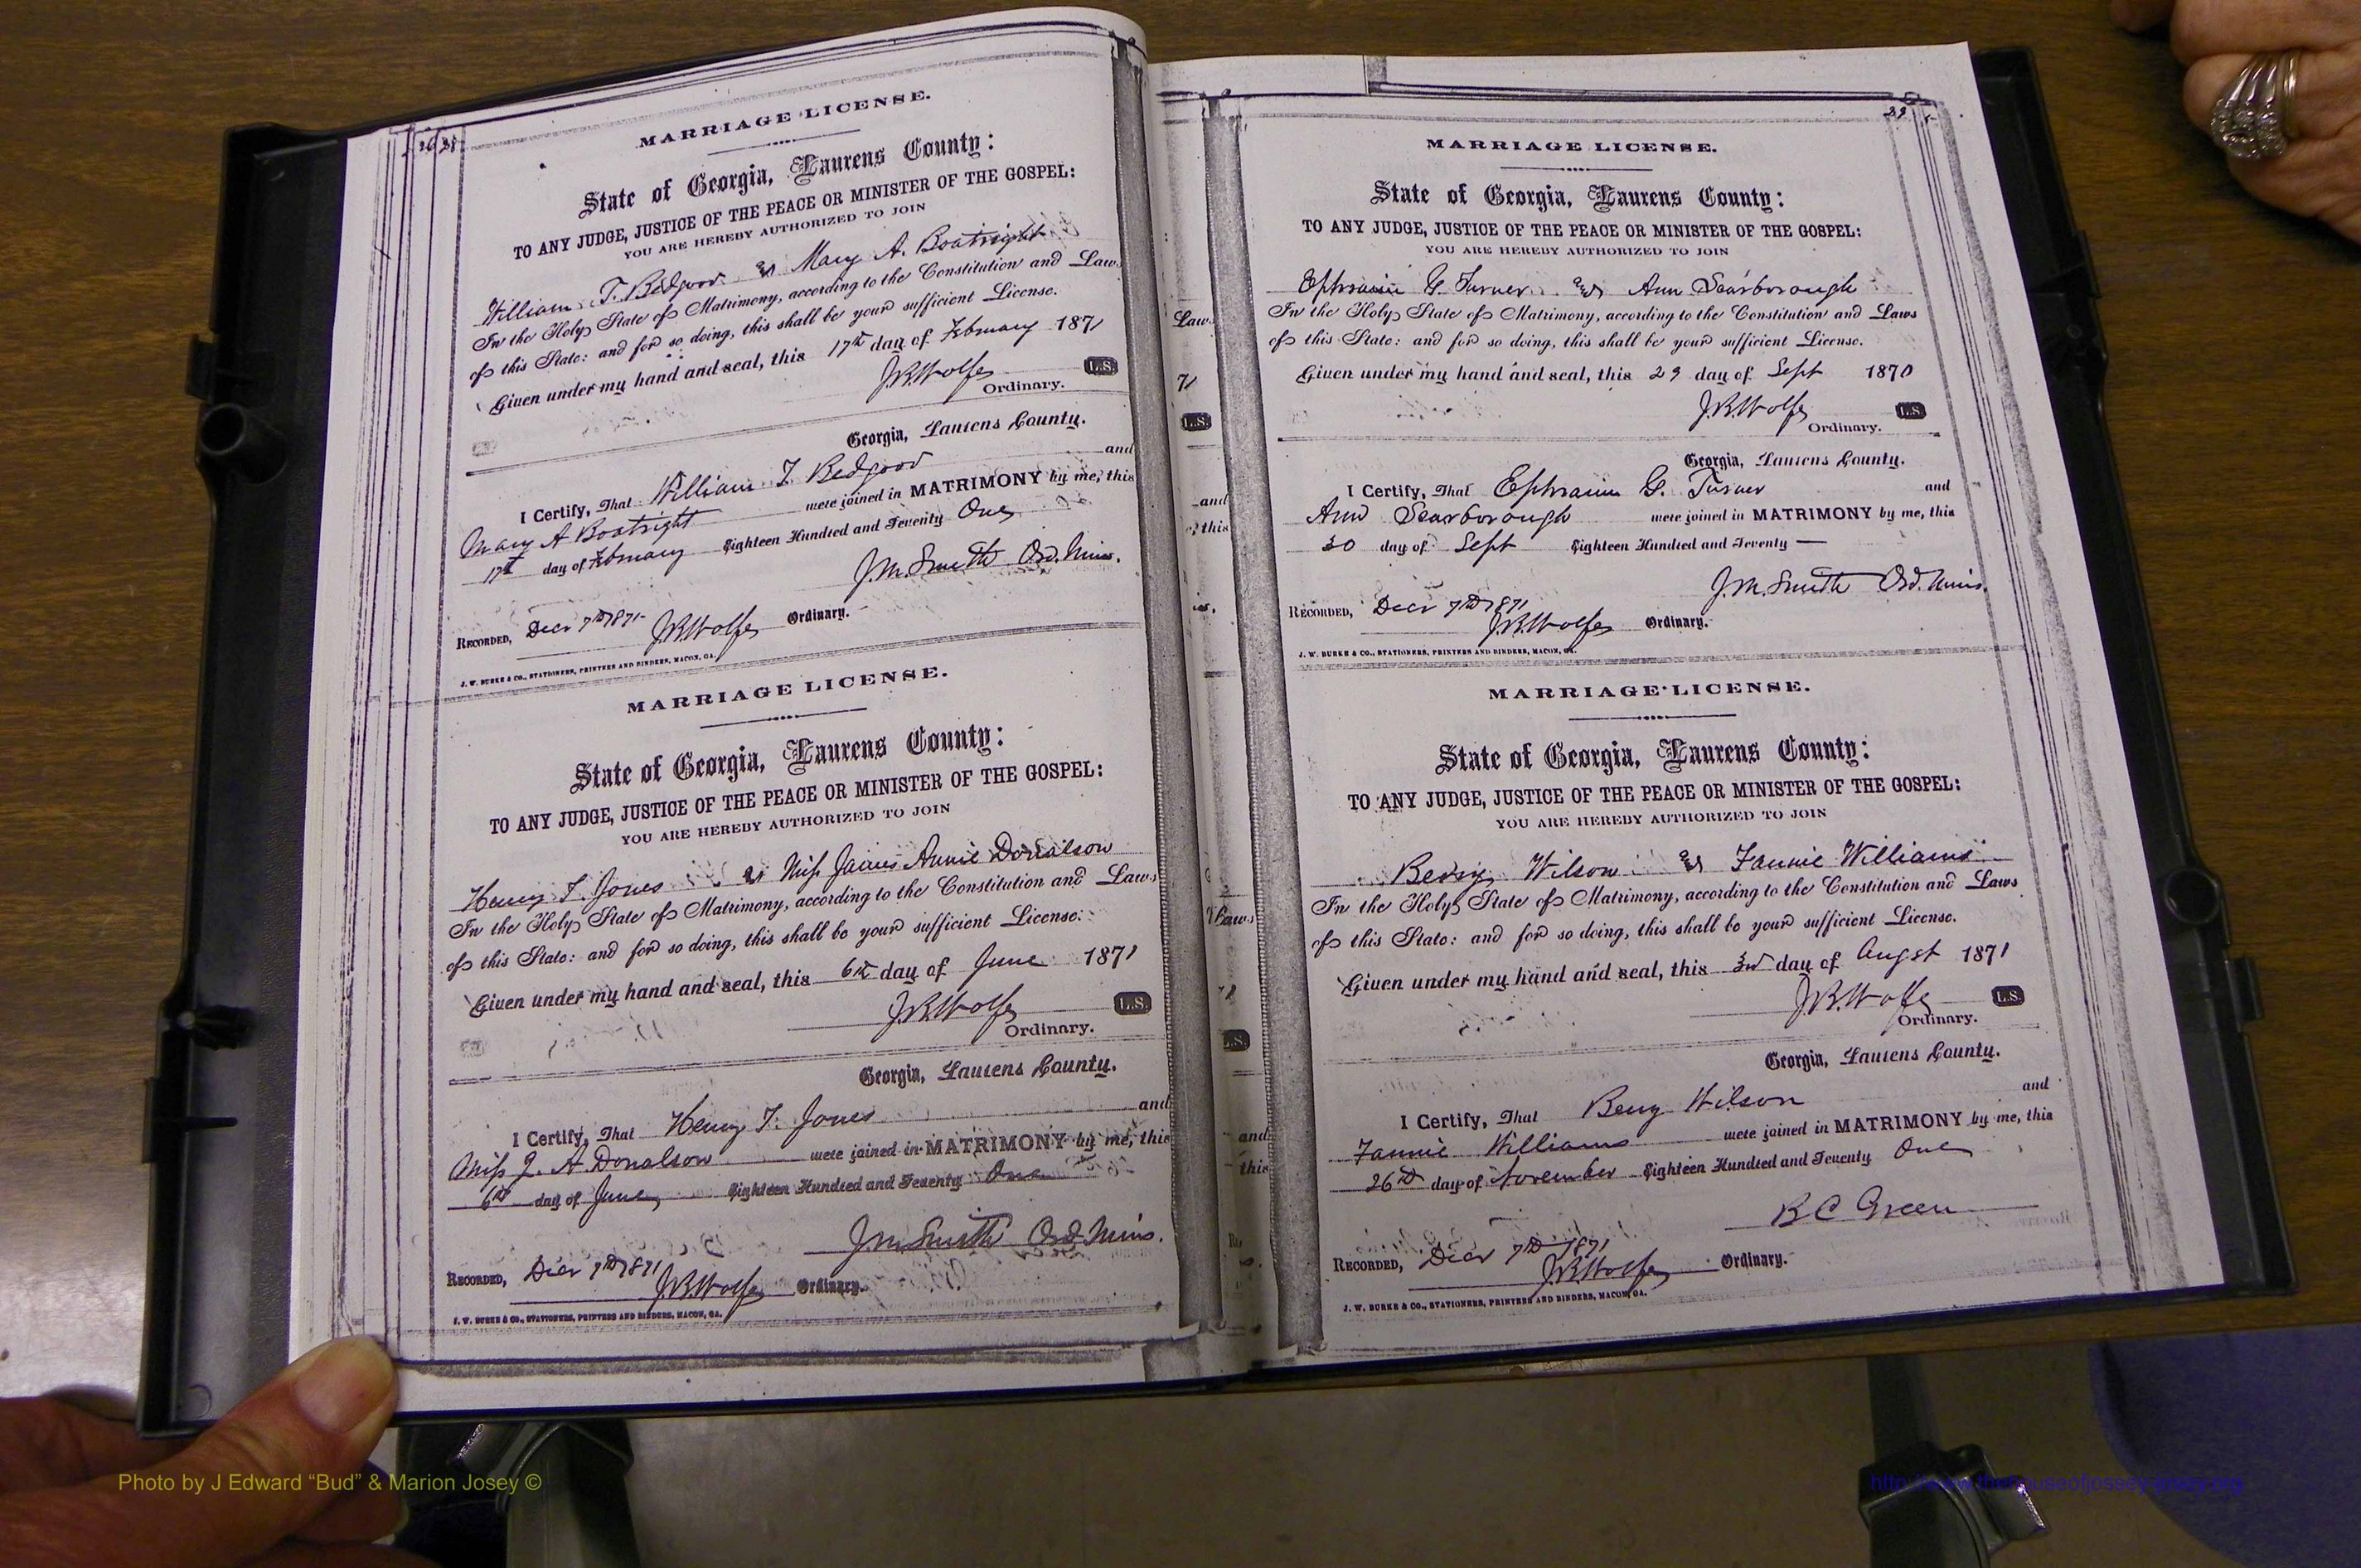 MARRIAGE LICENSE.
State of Georgia, Laurens County:
TO ANY JUDGE, JUSTICE OF THE PEACE OR MINISTER OF THE GOSPEL:
YOU ARE HEREBY AUTHORIZED TO JOIN
William T. Bedgood & Mary A. Boatright
In the Holy State of Matrimony, according to the Constitution and Laws
of this State: and for so doing, this shall be your sufficient License.
Given under my hand and seal, this 17th day of February 1871
J.B. Wolfe L.S.
Ordinary.
Georgia, Laurens County.
I Certify, That William T. Bedgood and
Mary A Boatright were joined in MATRIMONY by me, this
17th day of February Eighteen Hundred and Seventy One
J.M. Smith Ord. Mins.
RECORDED, Decr 7th 1871 J.B. Wolfe Ordinary.
J. W. BURKE & CO., STATIONERS, PRINTERS AND BINDERS, MACON, GA.
MARRIAGE LICENSE.
State of Georgia, Laurens County:
TO ANY JUDGE, JUSTICE OF THE PEACE OR MINISTER OF THE GOSPEL:
YOU ARE HEREBY AUTHORIZED TO JOIN
Henry T. Jones & Miss James Annie Donalson
In the Holy State of Matrimony, according to the Constitution and Laws
of this State: and for so doing, this shall be your sufficient License.
Given under my hand and seal, this 6th day of June 1871
J.B. Wolfe L.S.
Ordinary.
Georgia, Laurens County.
I Certify, That Henry T. Jones and
Miss J. A Donalson were joined in MATRIMONY by me, this
6th day of June Eighteen Hundred and Seventy One
J.M. Smith Ord. Mins.
RECORDED, Decr 7th 1871 J.B. Wolfe Ordinary.
J. W. BURKE & CO., STATIONERS, PRINTERS AND BINDERS, MACON, GA.
Laws
71
L.S.
and
this
Laws
L.S.
and
this
39
MARRIAGE LICENSE.
State of Georgia, Laurens County:
TO ANY JUDGE, JUSTICE OF THE PEACE OR MINISTER OF THE GOSPEL:
YOU ARE HEREBY AUTHORIZED TO JOIN
Ephraim G. Turner & Ann Scarborough
In the Holy State of Matrimony, according to the Constitution and Laws
of this State: and for so doing, this shall be your sufficient License.
Given under my hand and seal, this 29 day of Sept 1870
J.B. Wolfe L.S.
Ordinary.
Georgia, Laurens County.
I Certify, That Ephraim G. Turner and
Ann Scarborough were joined in MATRIMONY by me, this
30 day of Sept Eighteen Hundred and Seventy —
J.M. Smith Ord. Mins.
RECORDED, Decr 7th 1871
J.B. Wolfe Ordinary.
J. W. BURKE & CO., STATIONERS, PRINTERS AND BINDERS, MACON, GA.
MARRIAGE LICENSE.
State of Georgia, Laurens County:
TO ANY JUDGE, JUSTICE OF THE PEACE OR MINISTER OF THE GOSPEL:
YOU ARE HEREBY AUTHORIZED TO JOIN
Wilson & Fannie Williams
In the Holy State of Matrimony, according to the Constitution and Laws
of this State: and for so doing, this shall be your sufficient License.
Given under my hand and seal, this 3rd day of Augst 1871
J.B. Wolfe L.S.
Ordinary.
Georgia, Laurens County.
I Certify, That Benj Wilson and
Fannie Williams were joined in MATRIMONY by me, this
26th day of November Eighteen Hundred and Seventy One
B C Green
RECORDED, Decr 7th 1871
J.B. Wolfe Ordinary.
J. W. BURKE & CO., STATIONERS, PRINTERS AND BINDERS, MACON, GA.
Photo by J Edward “Bud” & Marion Josey ©
http://www.thehouseofjossey-josey.org